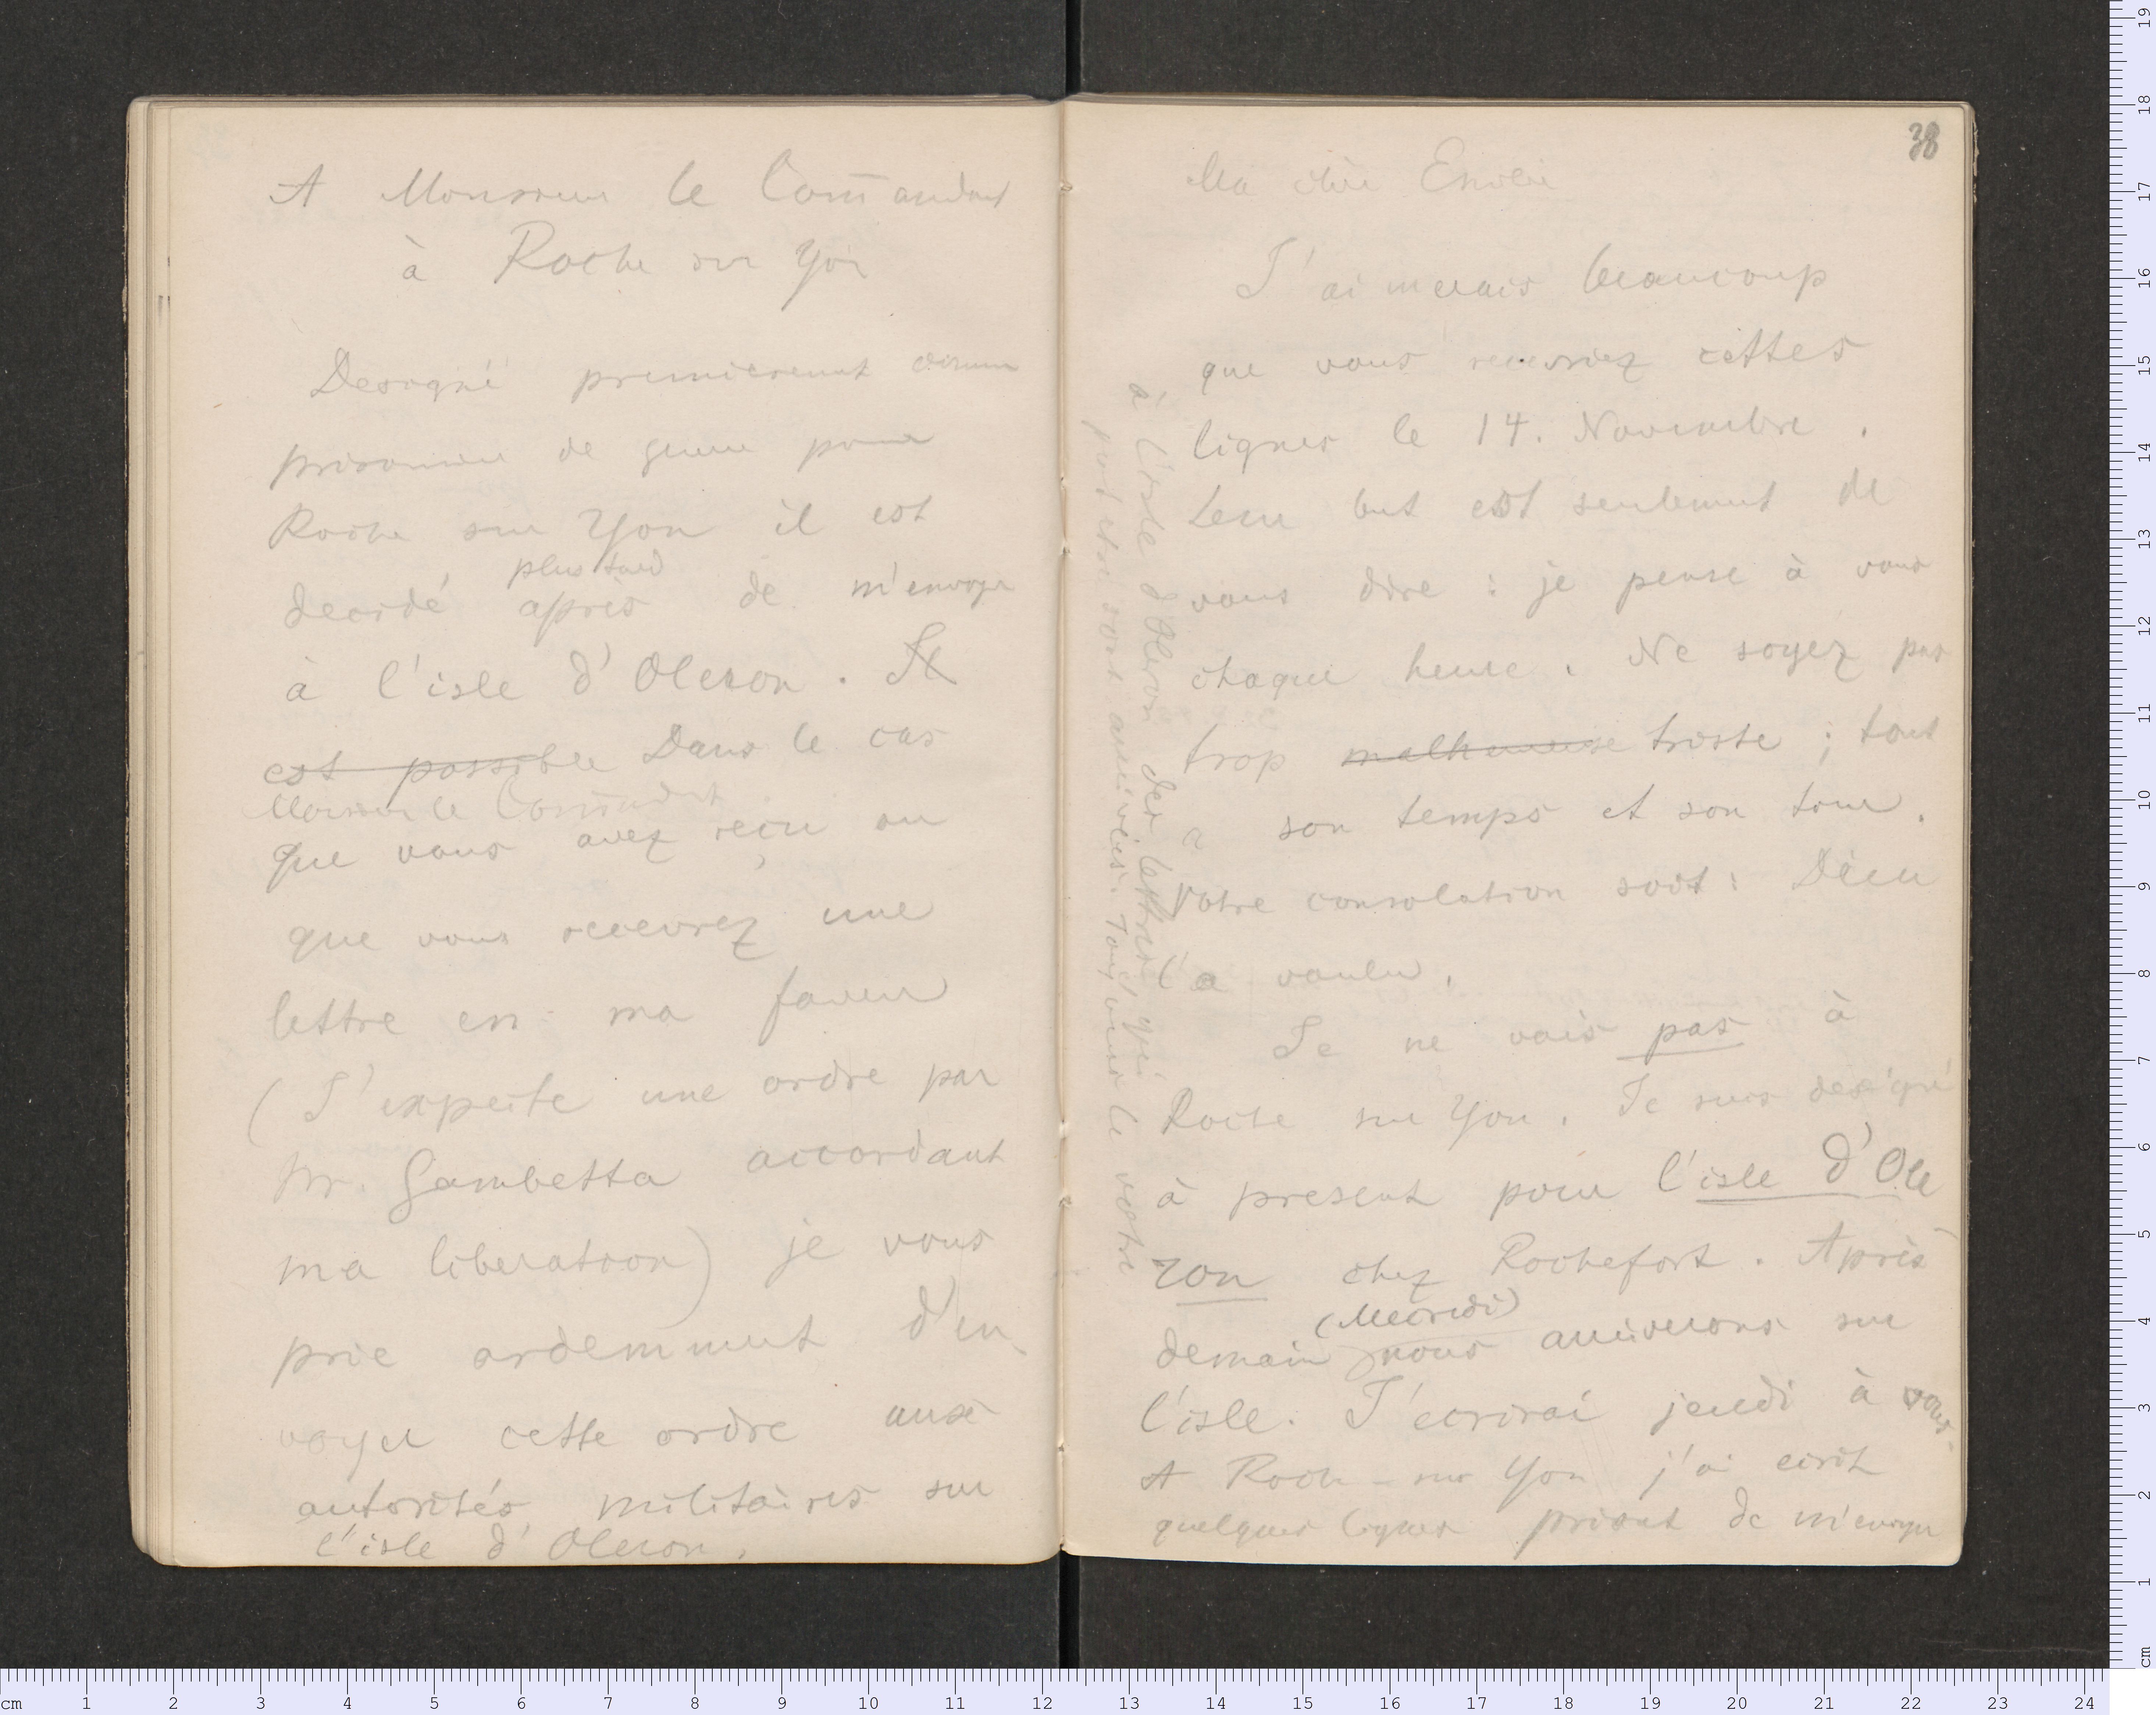 A Monsieur le Com̄andant
à Roche sur Yon
Designé premierement comme
prisonnier de guerre pour
Roche sur Yon il est
plus tard
decidé après de m'envoyer
à l'isle d'Oleron. Il
est possible Dans le cas
Monsieur le Com̄andant
que vous avez reçu ou
que vous recevrez une
lettre en ma faveur
(J'expecte une ordre par
Mr. Gambetta accordant
ma liberation) je vous
prie ardemment d'en
voyer cette ordre aux
autorités militaires sur
l'isle d'Oleron.
38
Ma chère Emilie
J'aimerais beaucoup
que vous receviez cettes
lignes le 14. Novembre.
Leur but est seulement de
vous dire : je pense à vous
chaque heure. Ne soyez pas
trop malheureuse triste ; tout
a son temps et son tour.
Votre consolation soit : Dieu
l'a voulu.
Je ne vais pas à
Roche sur Yon. Je suis designé
à present pour l'isle d'Ole
ron chez Rochefort. Après
(Mecredi)
demain nous arriverons sur
l'isle. J'ecrirai jeudi à vous.
A Roche-sur Yon j'ai ecrit
quelques lignes priant de m'envoyer
à l'isle d'Oleron des lettres qui
peut etre sont arrivées. Toujours le votre